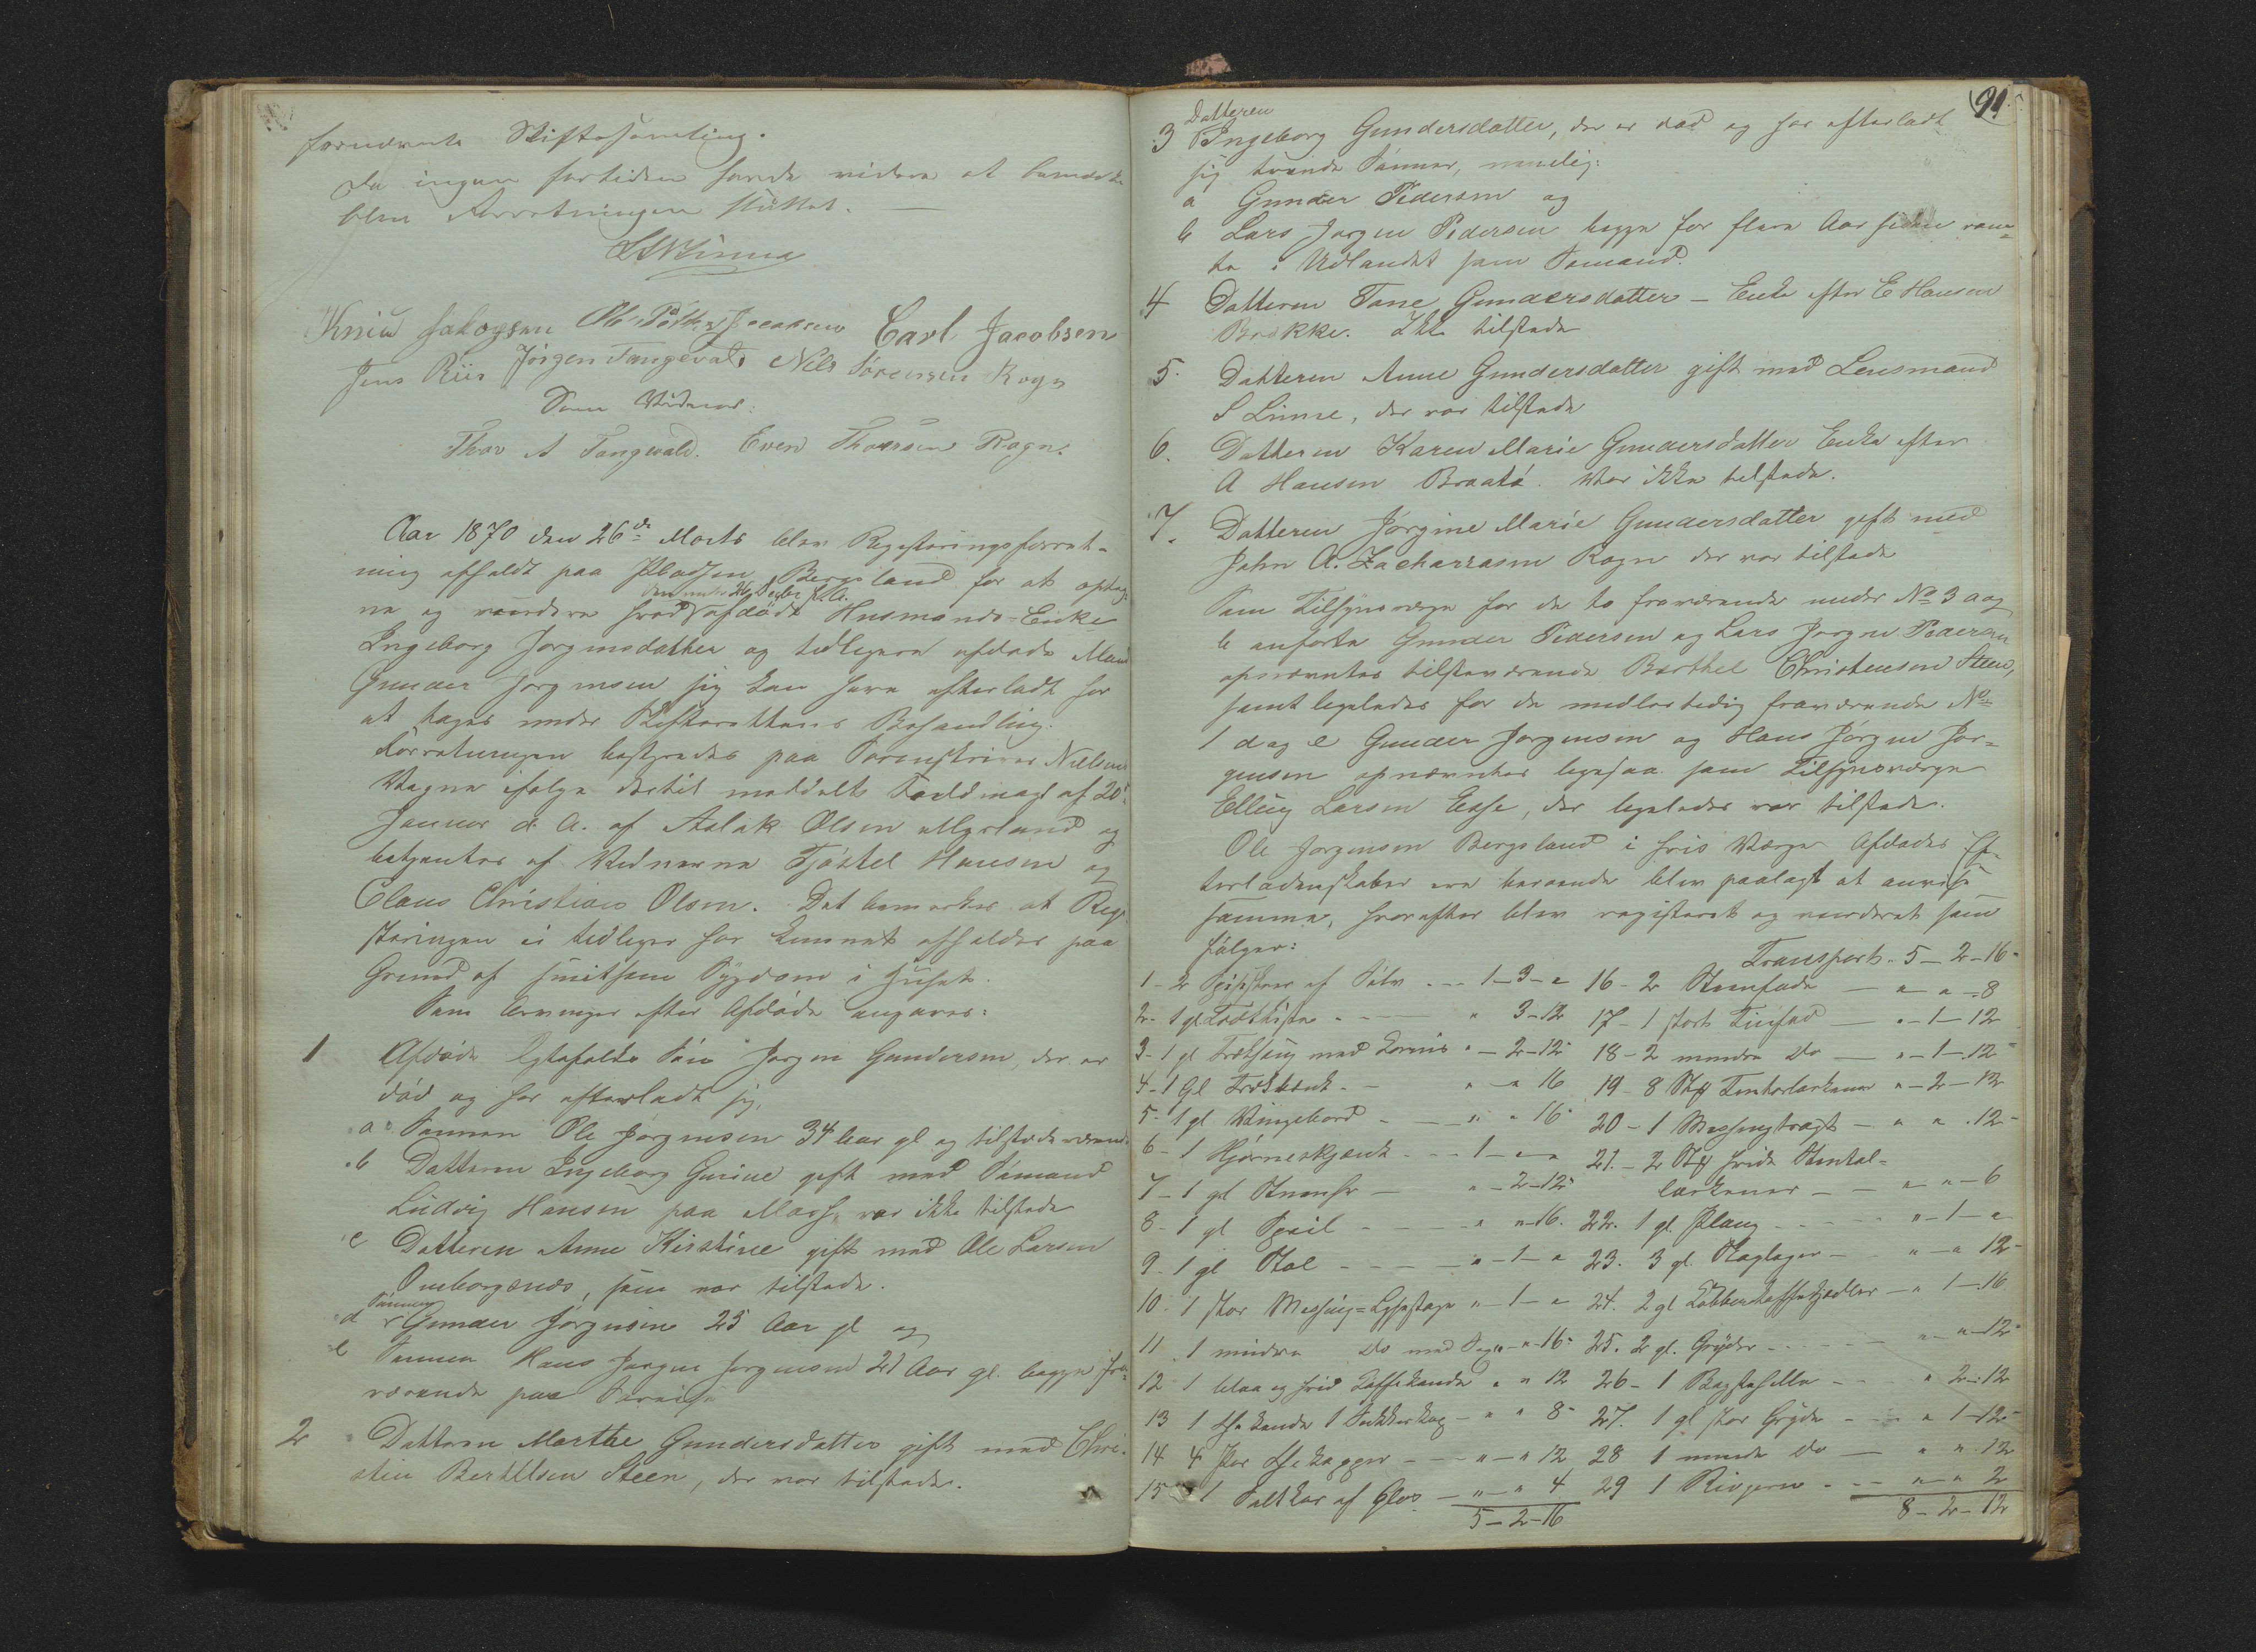 fornævnte Skiftesamling.
Da ingen fortiden havde videre at bemærke
blev Forretningen sluttet. —
Knud Jakogsen Ole Peter Jacobsen Carl Jacobsen
Jens Riis Jørgen Tangevald Nils Sørensen Rogn
Som Vidner:
Thor A Tangvald. Even Thorsen Rogn.
Aar 1870 den 26de Marts blev Registeringsforret-
ning afholdt paa Pladsen Bergsland for at optag-
den under 26 Decbr f. A.
ne og vurdere hvad afdøde Husmands-Enke
Ingeborg Jørgensdatter og tidligere afdøde Mand
Gunder Jørgensen sig kan have efterladt for
at tages under Skifterettens Behandling.
Forretningen bestyredes paa Sorenskriver Nielsens
Vegne ifølge dertil meddelt Fuldmagt af 20
Januar d. A. af Aslak Olsen Myrland og
betjentes af Vidnerne Tjøstel Hansen og
Claus Christian Olsen. Det bemærkes at Regi-
steringen ei tidligere har kunnet afholdes paa
Grund af smitsom Sygdom i Huset.
Som Arvinger efter Afdøde angaves:
1 Afdøde Egtefolks Søn Jørgen Gundersen, der er
død og har efterladt sig,
a Sønnen Ole Jørgensen 34 Aar gl og tilstedeværende
b Datteren Ingeborg Gurine gift med Sømand
Ludvig Hansen paa var ikke tilstede
c Datteren Anne Kirstine gift med Ole Larsen
Omborgsnes, som var tilstede.
Sønnen
d Gunder Jørgensen 25 Aar gl og
e Sønnen Hans Jørgen Jørgensen 21 Aar gl. begge fra-
værende paa
2 Datteren Marthe Gundersdatter gift med Chri-
stin Bertelsen Steen, der var tilstede.
91.
Datteren
3 Ingeborg Gundersdatter, der er død og har efterladt
sig tvende Sønner, nemlig:
a Gunder Pedersen og
b Lars Jørgen Pedersen begge for flere Aar siden røm-
te i Udlandet som Sømænd.
4 Datteren Tone Gundersdatter — Enke efter E Hansen
Brække. Ikke tilstede
5. Datteren Anne Gundersdatter gift med Lensmand
S Linne, der var tilstede
6. Datteren Karen Marie Gundersdatter Enke efter
A Hansen Braatø. Var ikke tilstede.
7. Datteren Jørgine Marie Gundersdatter gift med
John A. Zachariasen Rogn der var tilstede
Som Tilsynsværge for de to fraværende under No 3 a og
b anførte Gunder Pedersen og Lars Jørgen Pedersen
opnævntes tilstedeværende Barthel Christensen Steen,
samt ligeledes for de midlertidig fraværende No
1 d og e Gunder Jørgensen og Hans Jørgen Jør-
gensen opnævntes ligesaa som Tilsynsværge
Elling Larsen Esse, der ligeledes var tilstede.
Ole Jørgensen Bergsland i hvis Værge Afdødes Ef-
terladenskaber ere beroende blev paalagt at anvise
samme, hvorefter blev registeret og vurderet som
følger:
1 - 2 Spiseskeer af Sølv - - - 1 - 3 - "
2 - 1 gl Trækiste - - - " 3 - 12
3 - 1 gl Træseng med Karnis " - 2 - 12
4 - 1 Gl Træbænk - - " - " 16
5 - 1 gl Vingebord - - " " 16
6 - 1 Hjørneskjænk - - - 1 - " - "
7 - 1 gl Stueuhr - " - 2 - 12
8 - 1 gl Speil - - - - " " 16.
9 - 1 gl Stol - - - - " - 1 - "
10. 1 stor Messing-Lysestage " - 1 - "
11 1 mindre do med " - " - 16
12 1 blaa og hvid Kaffekande " " 12
13 1 Thekande 1 Sukkerkop - " " 8
14 4 Par Thekopper - - " - " 12
15 1 Saltkar af Glas - " - " 4
5 - 2 - 16
Transport - 5 - 2 - 16
16 - 2 Steenfade — " " - 8
17 - 1 stort Tinfad — " - 1 - 12
18 - 2 mindre do — " - 1 - 12
19 - 8 Stk Tintalerkener " - 2 - 12
20 - 1 Messingtragt — " " . 12
21. - 2 Stk hvide Stental-
lerkener - — " " - 6
22. 1 gl. Plaug - - - - " - 1 - "
23. 3 gl. - - " - " 12
24. 2 gl Kobberkaffekjedler - " 1 - 16
25. 2 gl. Gryder - - - - " - " - 12
26 - 1 Bagstehelle - - - " 2 - 12
27. 1 gl stor Gryde - - - " 1 - 12
28 1 mindre do — " " 12
29 1 Rivjern - - - " - " 2
8 - 2 - 12